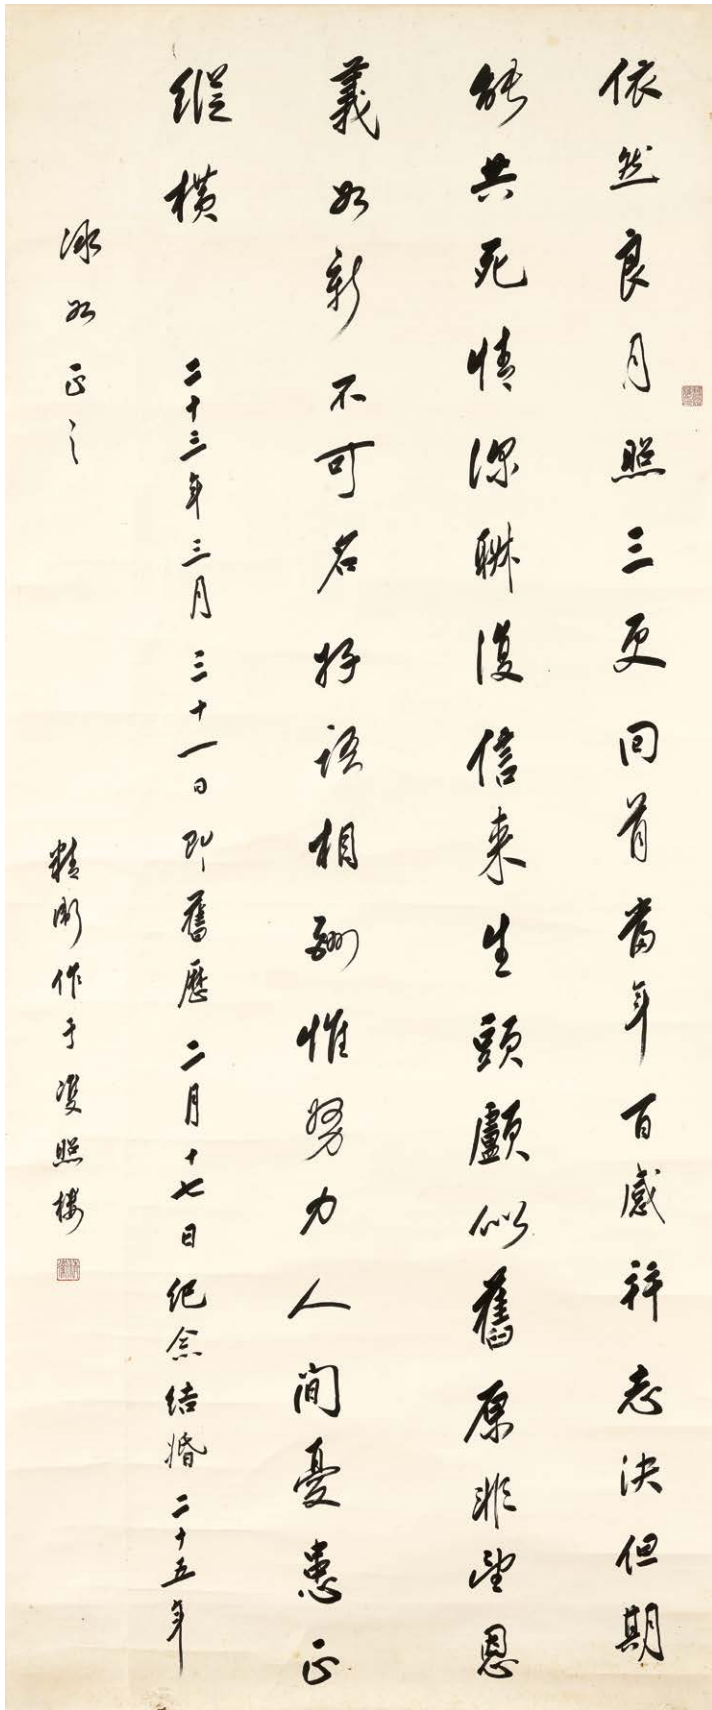 依然良月照三更回首當年百感併志決但期
能共死情深聊復信来生頭顱似舊原非望恩
義如新不可名好語相酬惟努力人間憂患正
縱橫 二十三年三月三十一日即舊歷二月十七日紀念結婚二十五年
冰如正之 精衛作于雙照樓